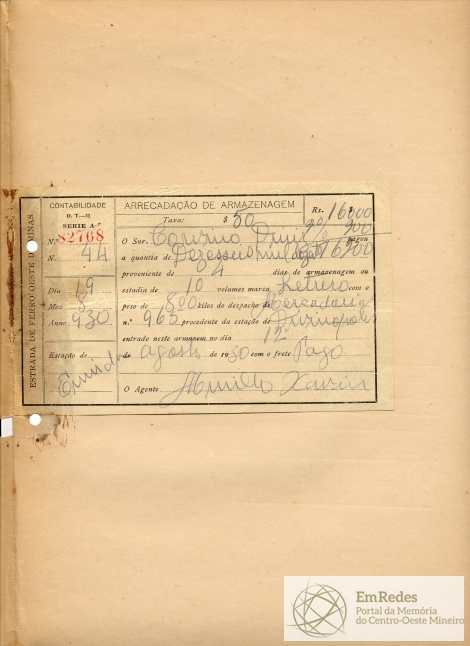 ESTRADA DE FERRO OESTE DE MINAS
CONTABILIDADE
D. T.—52
SERIE A
N. 82768
N. 44
Dia 19
Mez 8
Anno 930
Estação de
ARRECADAÇÃO DE ARMAZENAGEM
Taxa: $ 50 Rs. 16000
200
O Snr. pagou
a quantia de Dezesseis mil 16200
proveniente de 4 dias de armazenagem ou
estadia de 10 volumes marca Letreiro com o
peso de 800 kilos do despacho de Mercadoria
n.º 963 procedente da estação de Divinopolis
entrado neste armazem no dia 12
de agosto de 1930 com o frete Pago
O Agente Xavier
EmRedes
Portal da Memória
do Centro-Oeste Mineiro